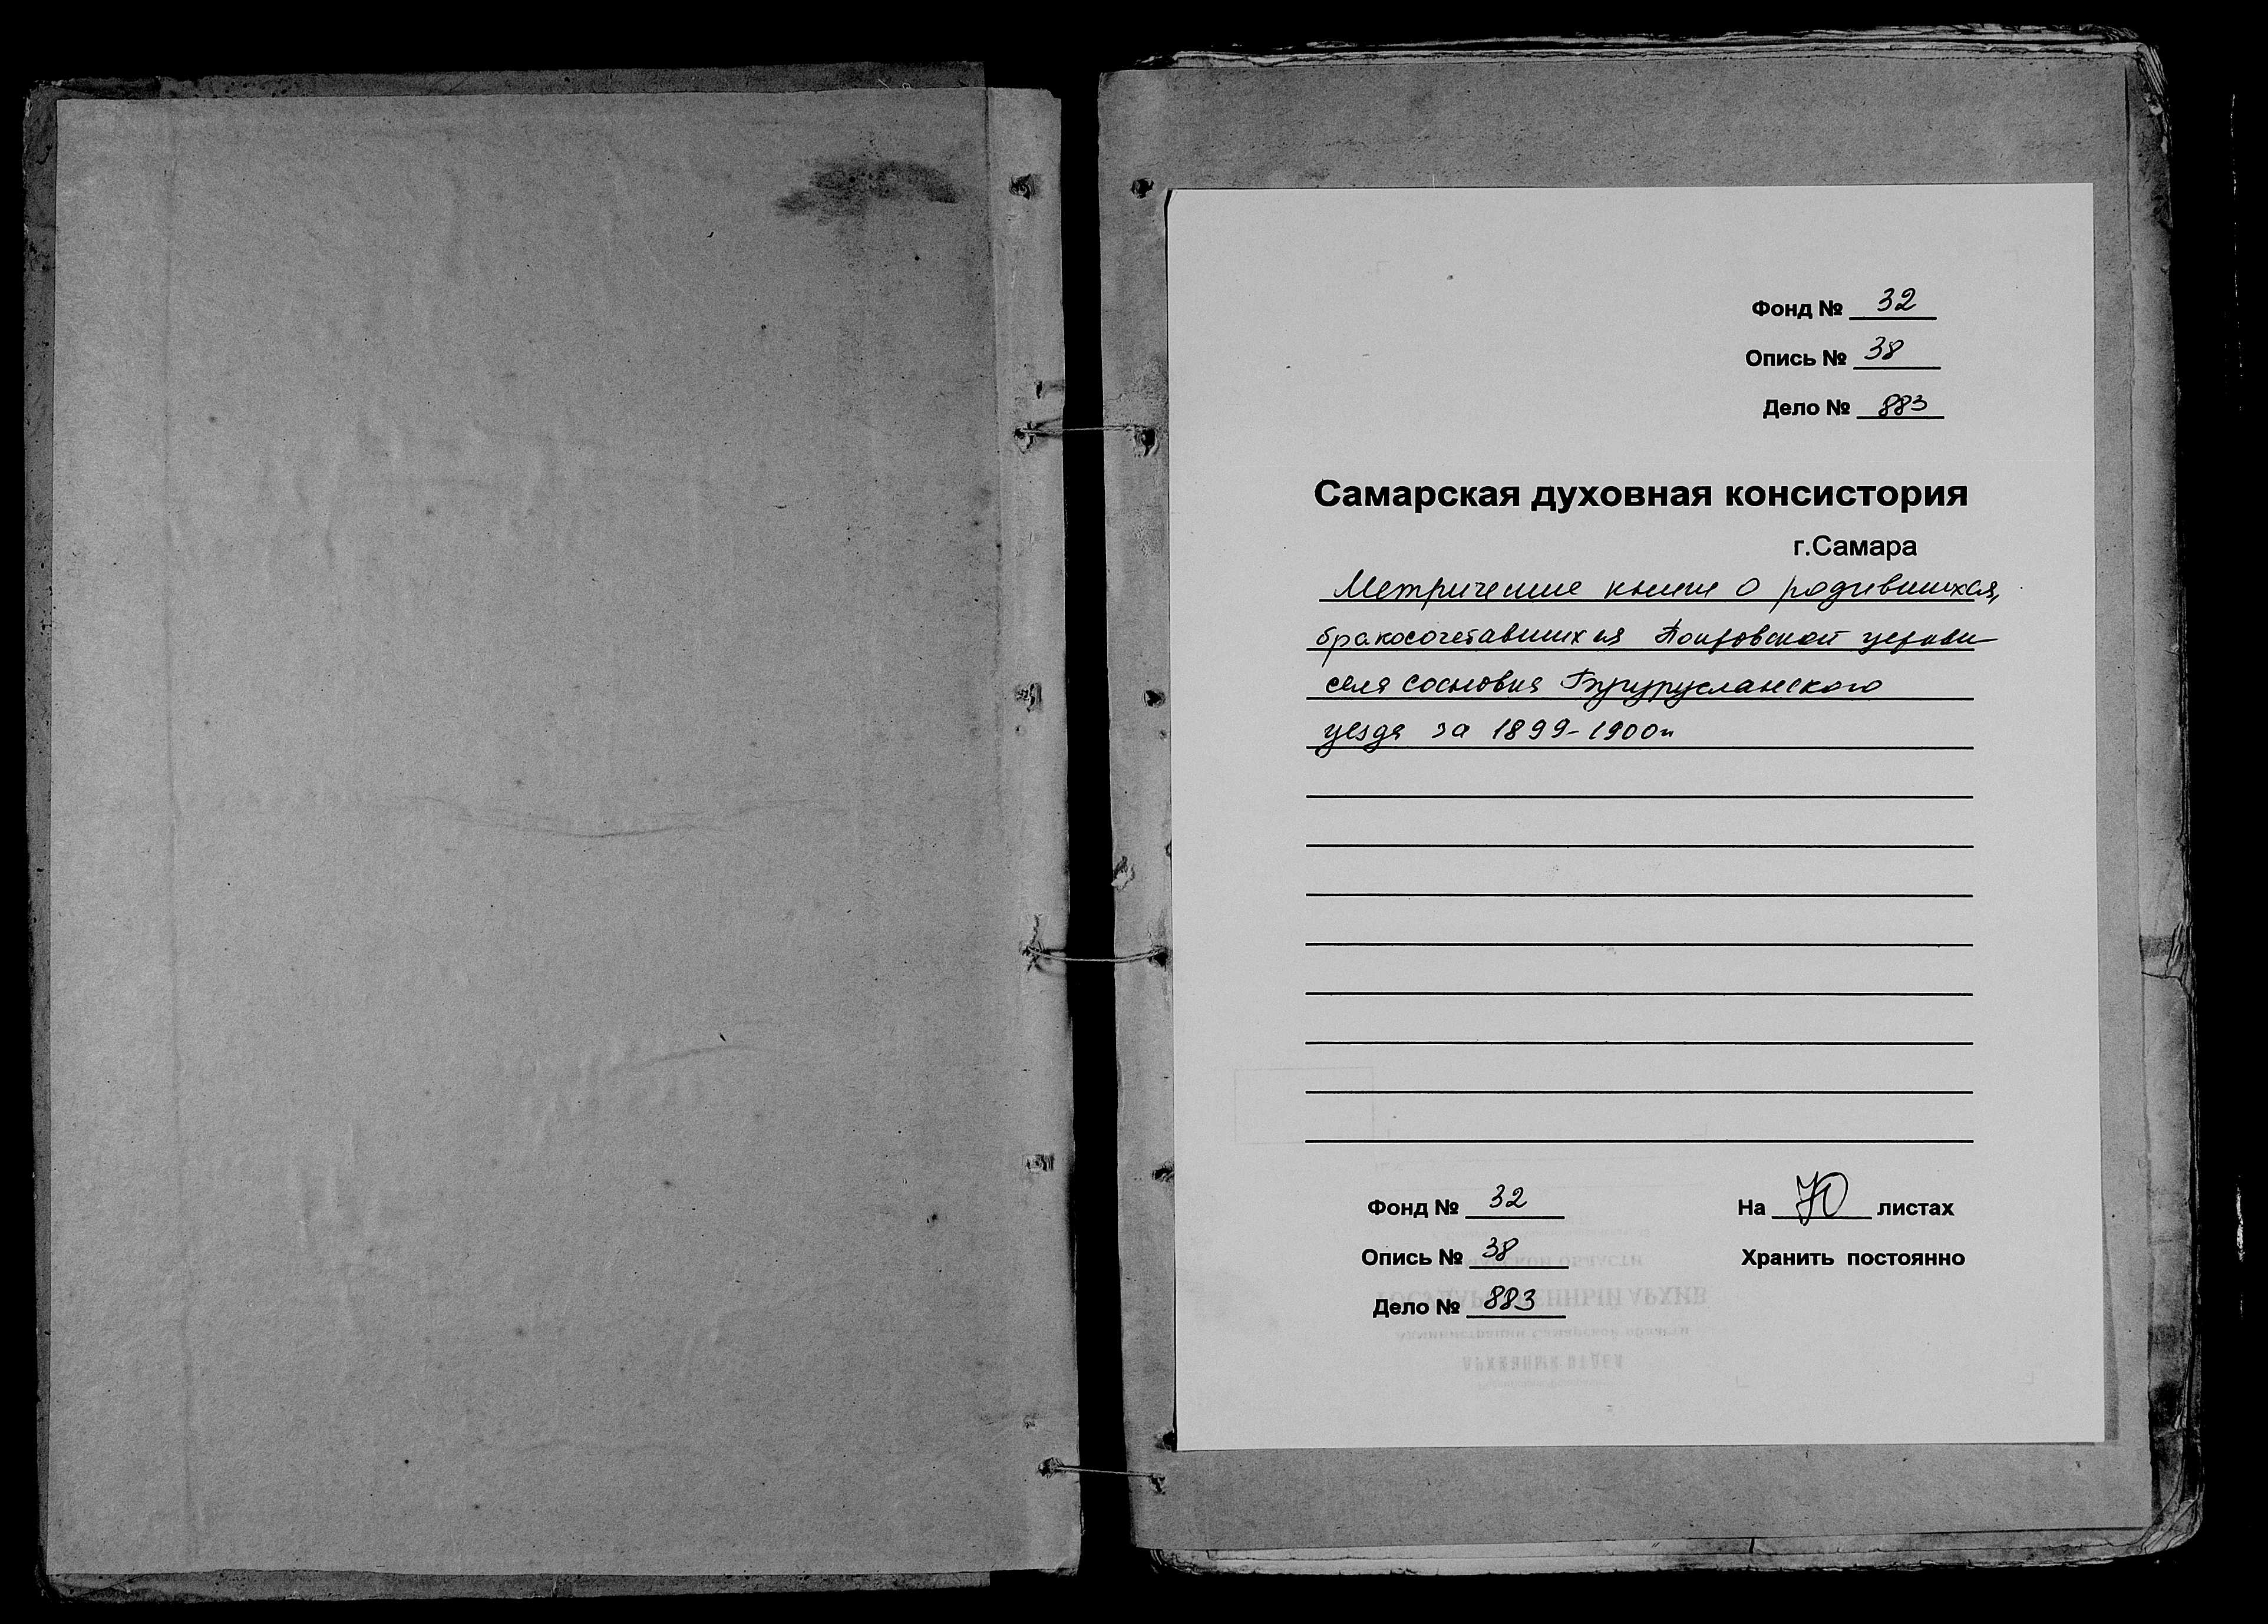 Фонд № 32
Опись № 38
Дело № 883
Самарская духовная консистория
г.Самара
Метрические книги о родившихся,
бракосочетавшихся Покровской церкви
села Сосновка Бугурусланского
уезда за 1899-1900гг
Фонд № 32
На 70 листах
Опись № 38
Хранить постоянно
Дело № 883